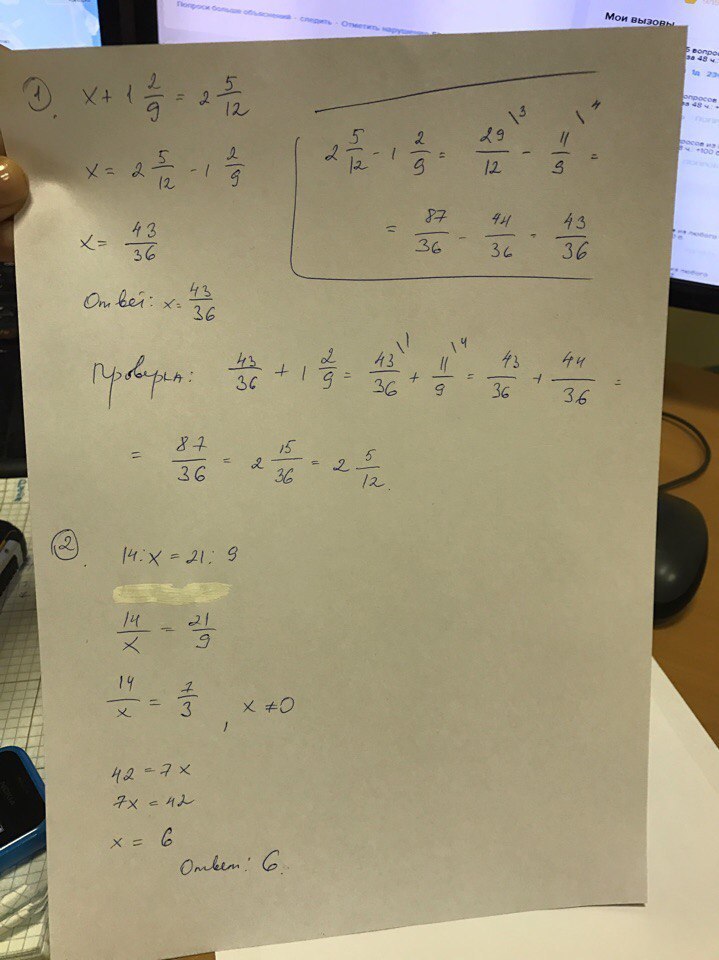 Попроси больше объяснения - следить - Отметить нарушение
Мои вызовы
1) x + 1 2/9 = 2 5/12
x = 2 5/12 - 1 2/9
x = 43/36
Ответ: x = 43/36
2 5/12 - 1 2/9 = 29/12 \3 - 11/9 \4 =
= 87/36 - 44/36 = 43/36
Проверка: 43/36 + 1 2/9 = 43/36 \1 + 11/9 \4 = 43/36 + 44/36 =
= 87/36 = 2 15/36 = 2 5/12.
2). 14 : x = 21 : 9
14/x = 21/9
14/x = 7/3 , x ≠ 0
42 = 7x
7x = 42
x = 6
Ответ: 6.